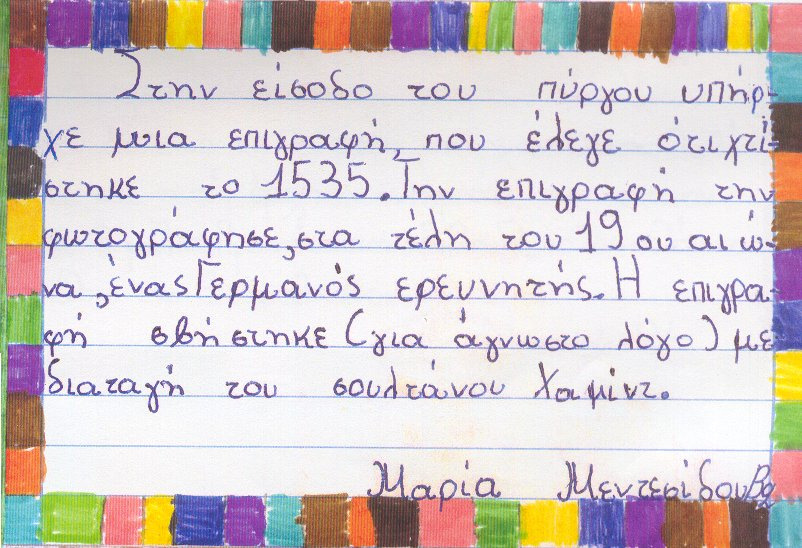 Στην είσοδο του πύργου υπήρ-
χε μια επιγραφή, που έλεγε ότι χτί-
στηκε το 1535. Την επιγραφή την
φωτογράφησε, στα τέλη του 19ου αιώ-
να, ένας Γερμανός ερευνητής. Η επιγρα-
φή σβήστηκε (για άγνωστο λόγο) με
διαταγή του σουλτάνου Χαμίντ.
Μαρία Μεντεσίδου